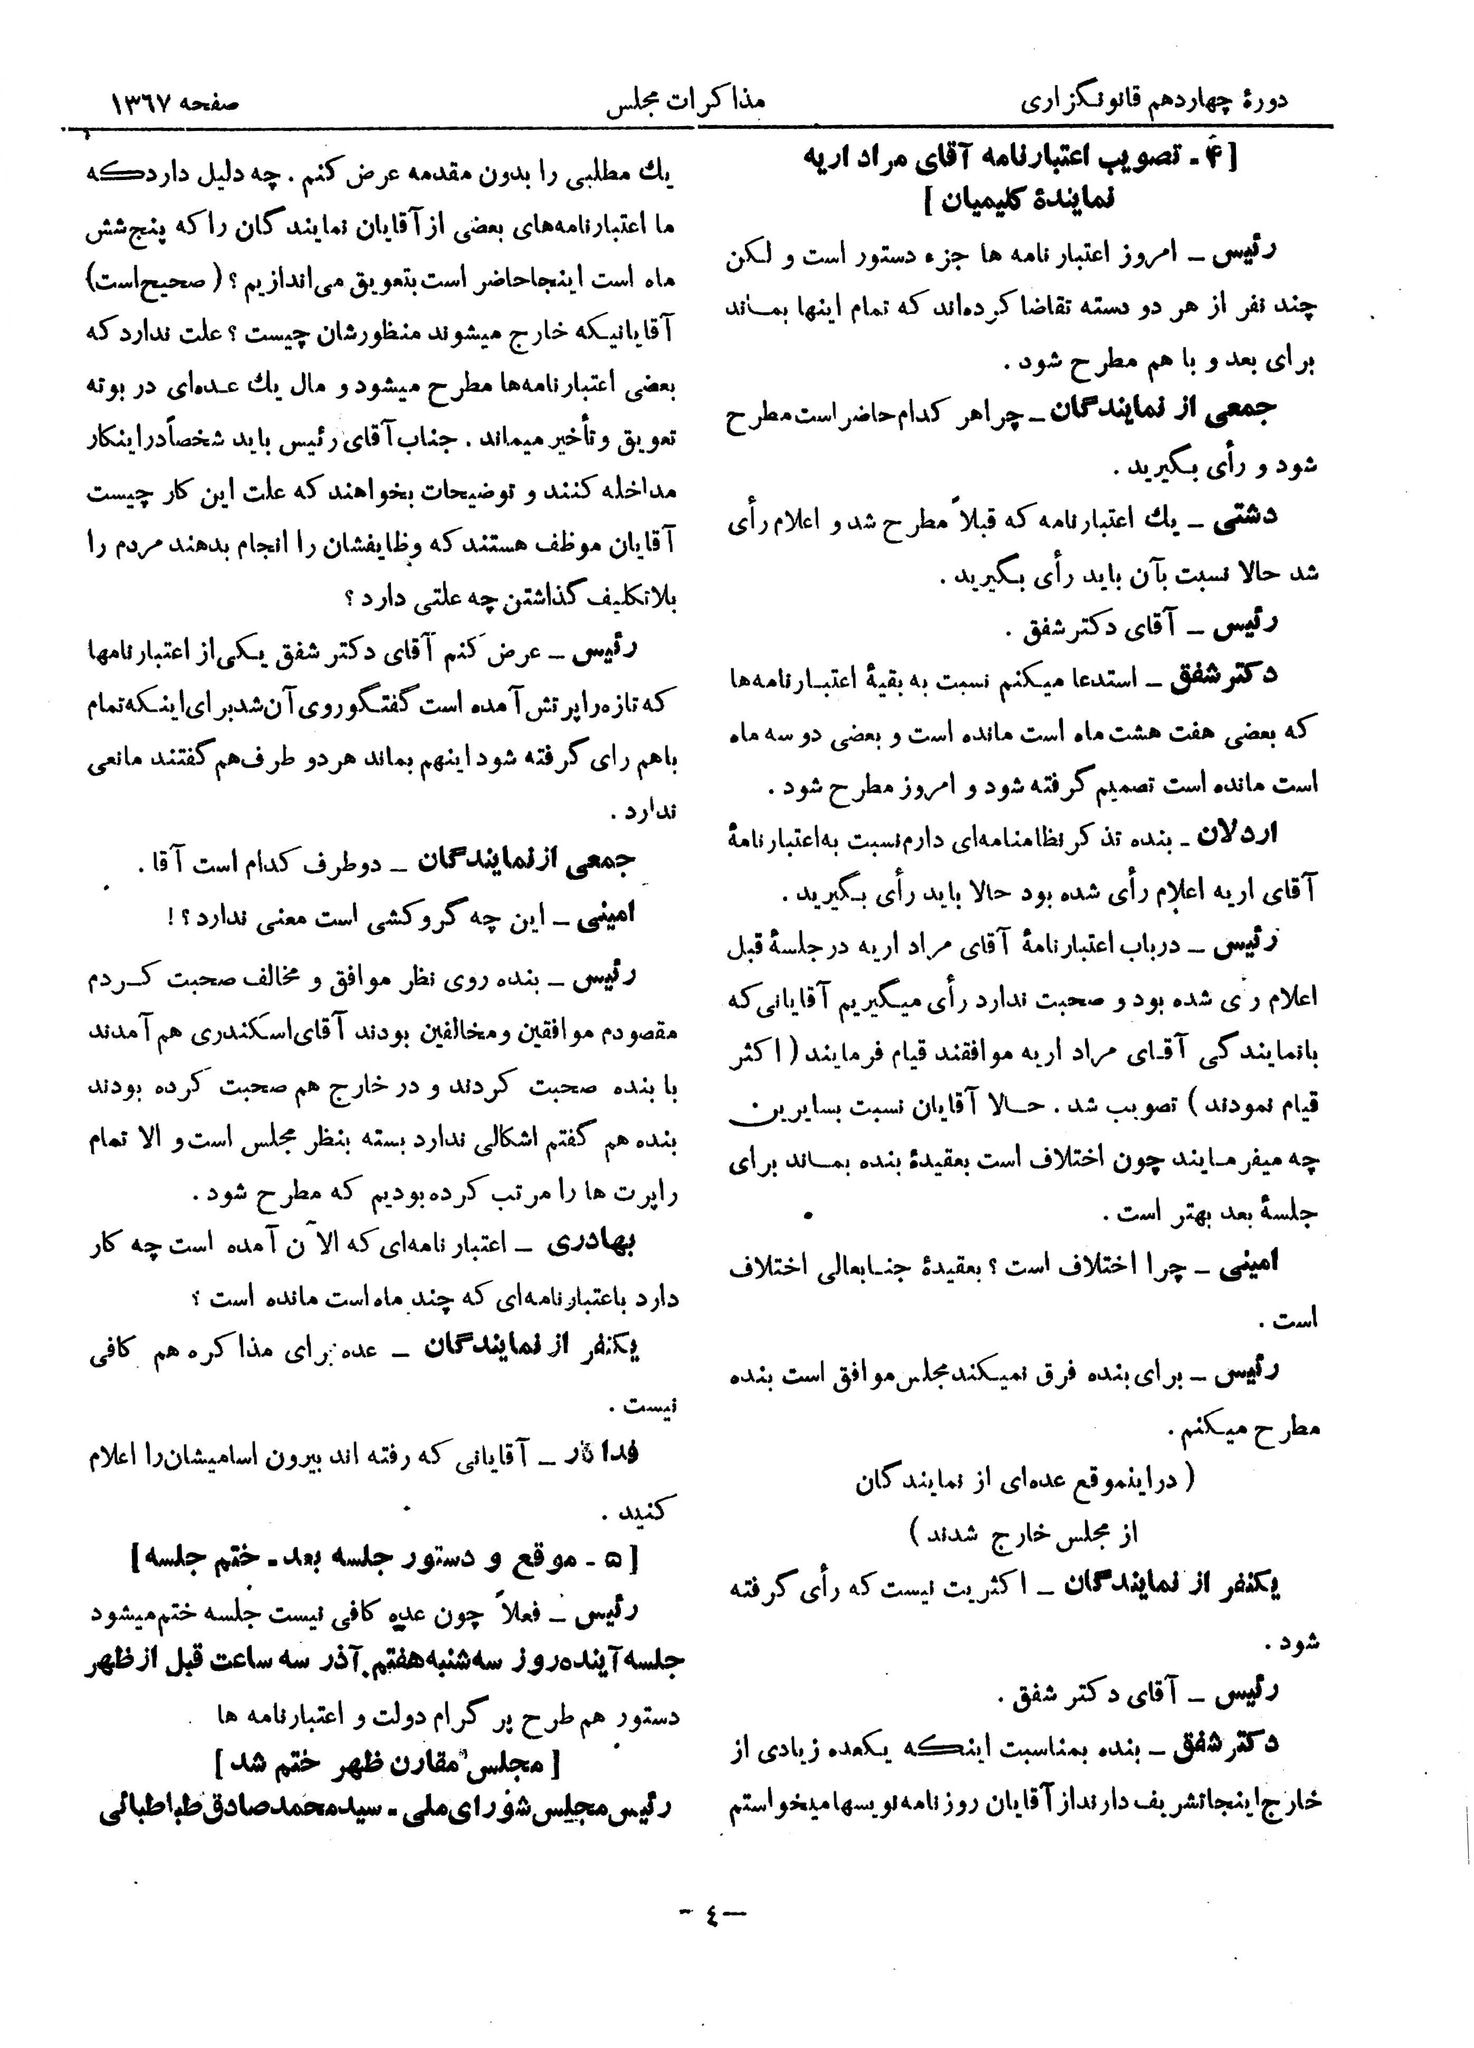 دورهٔ چهاردهم قانونگزاری
مذاکرات مجلس
صفحه ۱۳٦۷
[ ۴ـ تصویب اعتبارنامه آقای مراد اریه
نمایندهٔ کلیمیان ]
رئیس ـ امروز اعتبار نامه ها جزء دستور است و لکن
چند نفر از هر دو دسته تقاضا کرده‌اند که تمام اینها بماند
برای بعد و با هم مطرح شود .
جمعی از نمایندگان ـ چرا هر کدام حاضر است مطرح
شود و رأی بگیرید .
دشتی ـ یك اعتبارنامه که قبلاً مطرح شد و اعلام رأی
شد حالا نسبت بآن باید رأی بگیرید .
رئیس ـ آقای دکتر شفق .
دکتر شفق ـ استدعا میکنم نسبت به بقیهٔ اعتبارنامه‌ها
که بعضی هفت هشت ماه است مانده است و بعضی دو سه ماه
است مانده است تصمیم گرفته شود و امروز مطرح شود .
اردلان ـ بنده تذکر نظامنامه‌ای دارم نسبت به اعتبارنامهٔ
آقای اریه اعلام رأی شده بود حالا باید رأی بگیرید .
رئیس ـ درباب اعتبارنامهٔ آقای مراد اریه در جلسهٔ قبل
اعلام رٔی شده بود و صحبت ندارد رأی میگیریم آقایانی که
بانمایندگی آقای مراد اریه موافقند قیام فرمایند ( اکثر
قیام نمودند ) تصویب شد . حالا آقایان نسبت بسایرین
چه میفرمایند چون اختلاف است بعقیدهٔ بنده بماند برای
جلسهٔ بعد بهتر است .
امینی ـ چرا اختلاف است ؟ بعقیدهٔ جنابعالی اختلاف
است .
رئیس ـ برای بنده فرق نمیکند مجلس موافق است بنده
مطرح میکنم .
( در اینموقع عده‌ای از نمایندگان
از مجلس خارج شدند )
یکنفر از نمایندگان ـ اکثریت نیست که رأی گرفته
شود .
رئیس ـ آقای دکتر شفق .
دکتر شفق ـ بنده بمناسبت اینکه یکعده زیادی از
خارج اینجا تشریف دارند از آقایان روزنامه نویسها میخواستم
یك مطلبی را بدون مقدمه عرض کنم . چه دلیل دارد که
ما اعتبارنامه‌های بعضی از آقایان نمایندگان را که پنج شش
ماه است اینجا حاضر است بتعویق می‌اندازیم ؟ ( صحیح است )
آقایانیکه خارج میشوند منظورشان چیست ؟ علت ندارد که
بعضی اعتبارنامه‌ها مطرح میشود و مال یك عده‌ای در بوته
تعویق و تأخیر میماند . جناب آقای رئیس باید شخصاً در اینکار
مداخله کنند و توضیحات بخواهند که علت این کار چیست
آقایان موظف هستند که وظایفشان را انجام بدهند مردم را
بلاتکلیف گذاشتن چه علتی دارد ؟
رئیس ـ عرض کنم آقای دکتر شفق یکی از اعتبارنامها
که تازه راپرتش آمده است گفتگو روی آن شد برای اینکه تمام
باهم رای گرفته شود اینهم بماند هر دو طرف هم گفتند مانعی
ندارد .
جمعی از نمایندگان ـ دو طرف کدام است آقا .
امینی ـ این چه گروکشی است معنی ندارد ؟ !
رئیس ـ بنده روی نظر موافق و مخالف صحبت کردم
مقصودم موافقین و مخالفین بودند آقای اسکندری هم آمدند
با بنده صحبت کردند و در خارج هم صحبت کرده بودند
بنده هم گفتم اشکالی ندارد بسته بنظر مجلس است و الا تمام
راپرت ها را مرتب کرده بودیم که مطرح شود .
بهادری ـ اعتبار نامه‌ای که الآن آمده است چه کار
دارد با اعتبارنامه‌ای که چند ماه است مانده است ؟
یکنفر از نمایندگان ـ عده برای مذاکره هم کافی
نیست .
فداکار ـ آقایانی که رفته اند بیرون اسامیشان را اعلام
کنید .
[ ۵ ـ موقع و دستور جلسه بعد ـ ختم جلسه ]
رئیس ـ فعلاً چون عده کافی نیست جلسه ختم میشود
جلسه آینده روز سه شنبه هفتم آذر سه ساعت قبل از ظهر
دستور هم طرح پرگرام دولت و اعتبارنامه ها .
[ مجلس مقارن ظهر ختم شد ]
رئیس مجلس شورای ملی ـ سید محمد صادق طباطبائی
ـ ٤ ـ